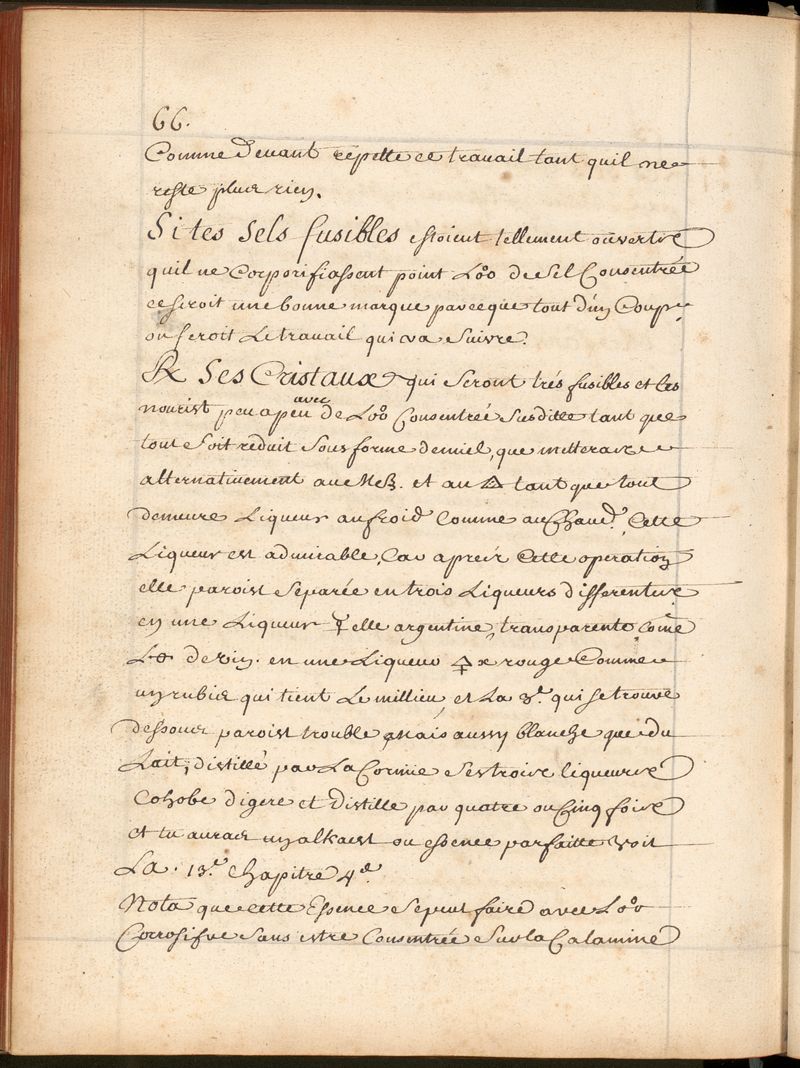 66.
Comme devant repette ce travail tant quil ne
reste plus rien.
Si tes sels fusibles estoient tellement ouverts
quil ne Corporifiassent point L° de sel Consentrée
ce seroit une bonne marque parceque tout d'un Coup
on feroit Le travail qui va suivre.
℞ Ses Cristaux qui seront trés fusibles et les
nourist peu a peu avec de L° Consentrée susditte tant que
tout soit reduit sous forme de miel, que metteras
alternativement au MB. et au 🜁 tant que tout
demeure Liqueur au froid Comme au Chaud, Cette
Liqueur est admirable, Car aprés Cette operation
elle paroist separée en trois Liqueurs differentes
en une Liqueur ☿elle argentine, transparente, come
de vin. en une Liqueur 🜍 rouge Comme
un rubis qui tient Le millieu, et La 3.e qui se trouve
dessous paroist trouble mais aussy blanche que du
Lait, distillé par La Cornue ses trois liqueurs
Cohobe digere et distille par quatre ou Cinq fois
et tu auras un alkaest ou essence parfaitte voit
La . 13.e Chapitre 4.e
Nota que cette Essence se peut faire avec L°
Corrosifve sans estre Consentrée sur la Calamine